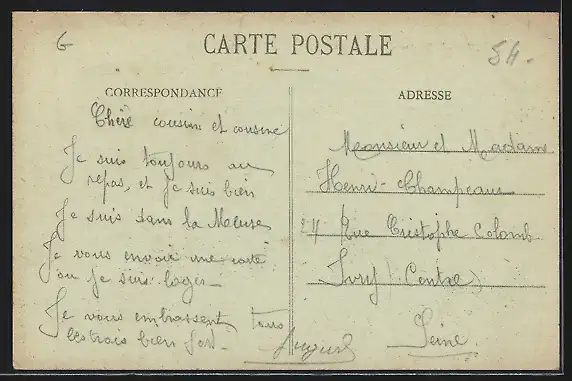 G
CARTE POSTALE
CORRESPONDANCE
Chére cousin et cousine
Je suis toujours au
repos, et je suis bien
Je suis dans la Meuse
Je vous envoie une carte
ou je suis loger
Je vous embrassent tous
les trois bien fort.
ADRESSE
Monsieur et Madame
Henri Champeaux
Rue Cristophe Colomb
Ivry (Centre)
Seine